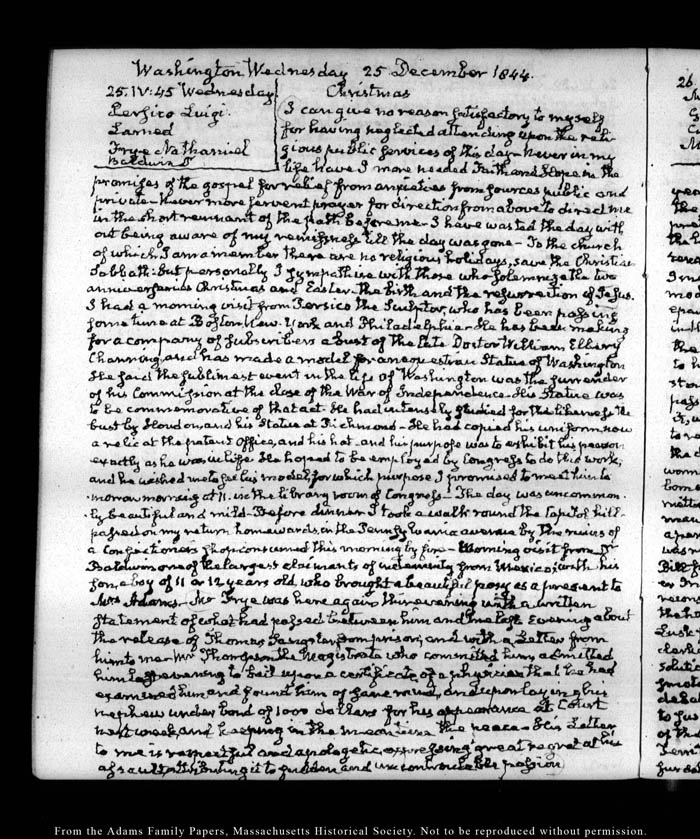 Washington Wednesday 25 December 1844.
25. IV:45 Wednesday Christmas
Persico Luigi.
Larned
Frye Nathaniel
Baldwin D
I can give no reason satisfactory to myself
for having neglected attending upon the reli-
gious public services of this day. Never in my
life have I more needed Faith and Hope in the
promises of the gospel for relief from anxieties from sources public and
private - Never more fervent prayer for direction from above to direct me
in the short remnant of the path before me. I have wasted the day with
out being aware of my remissness till the day was gone - In the church
of which I am a member there are no religious holidays, save the Christian
Sabbath. But personally I sympathise with those who solemnize the two
anniversaries Christmas and Easter. The birth and the resurrection of Jesus.
I had a morning visit from Persico the Sculptor, who has been passing
some time at Boston New-York and Philadelphia. He has been making
for a company of subscribers a bust of the late Doctor William Ellery
Channing, and has made a model for an equestrian Statue of Washington
He said the sublimest event in the life of Washington was the surrender
of his Commission at the close of the War of Independence. His Statue was
to be commemorative of that act. He had intensely studied for the likeness the
bust by Houdon and his Statue at Richmond - He had copied his uniform now
a relic at the patent Office, and his hat - and his purpose was to exhibit his person
exactly as he was in life. He hoped to be employed by Congress to do this work,
and he wished me to see his model, for which purpose I promised to meet him to
morrow morning at 11. in the library room of Congress - The day was uncommon-
ly beautiful and mild - Before dinner I took a walk round the Capitol hill -
passed on my return homewards, in the Pennsylvania avenue by the ruins of
a Confectioners shop consumed this morning by fire - Morning visit from Dr
Baldwin one of the largest claimants of indemnity from Mexico, with his
son, a boy of 11 or 12 years old, who brought a beautiful posy as a present to
Mrs Adams. Mr Frye was here again this evening with a written
statement of what had passed between him and me last Evening about
the release of Thomas Sangster from prison, and with a Letter from
him to me. Mr Thompson the Magistrate who committed him admitted
him last evening to bail upon a certificate of a physician that he had
examined him and found him of sane mind, and upon laying his
nephew under bond of 1000 dollars for his appearance at Court
next week, and keeping in the mean time the peace - His Letter
to me is respectful and apologetic, expressing great regret at his
assault, attributing it to sudden and uncontroulable passion
From the Adams Family Papers, Massachusetts Historical Society. Not to be reproduced without permission.